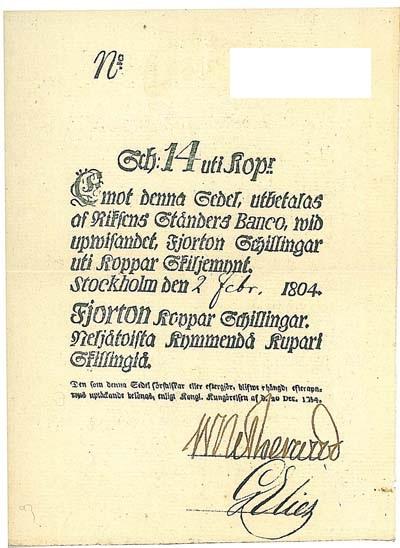 No
Sch: 14 uti Kopr
Emot denna Sedel, utbetalas
af Riksens Ständers Banco, wid
upwisandet, Fjorton Schillingar
uti Koppar Skiljemynt.
Stockholm den 2 Febr. 1804.
Fjorton Koppar Schillingar.
Neljätoista Kymmendä Kupari
Skillingiä.
Den som denna Sedel förfalskar eller eftergiör, blifwe hängd; efterapa-
rens uptäckande belönas, enligt Kongl. Kungörelsen af d.